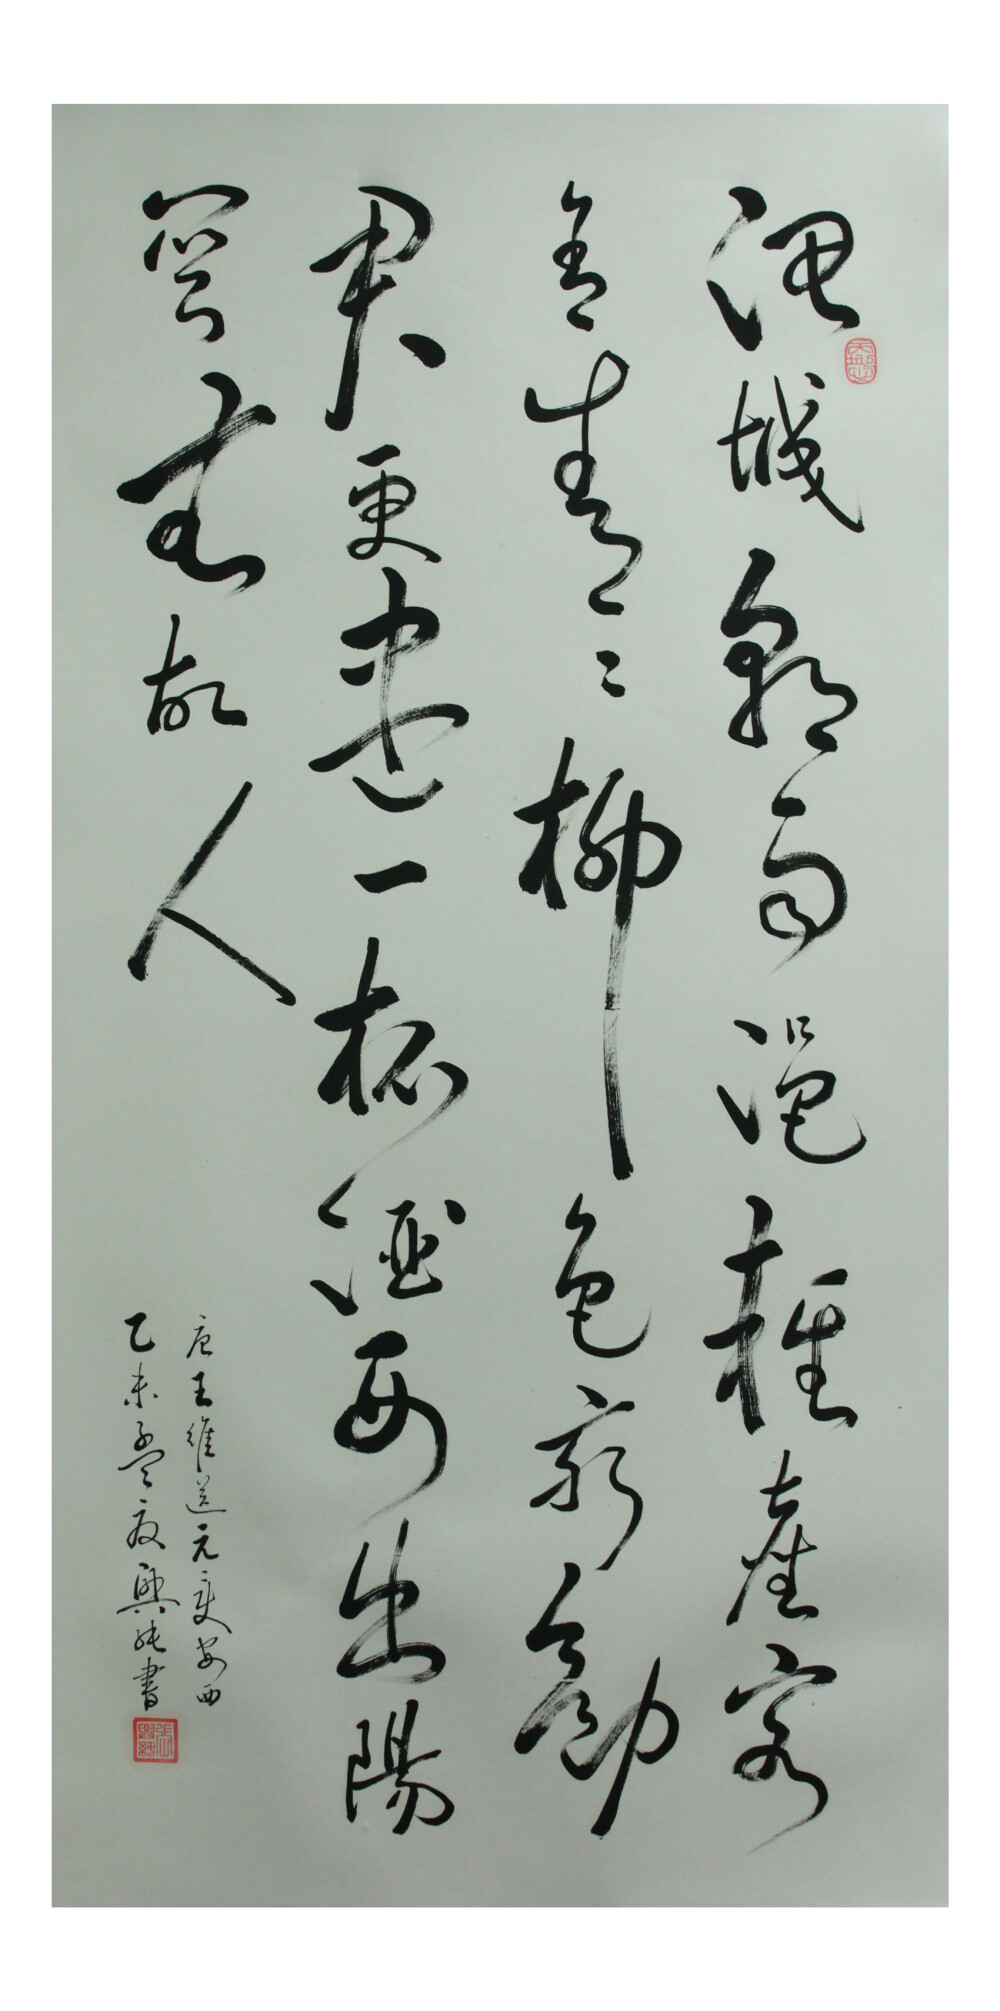 渭城朝雨浥輕塵客
舍青青柳色新勸
君更盡一杯酒西出陽
關無故人
唐王維送元二使安西
乙未孟夏興純書